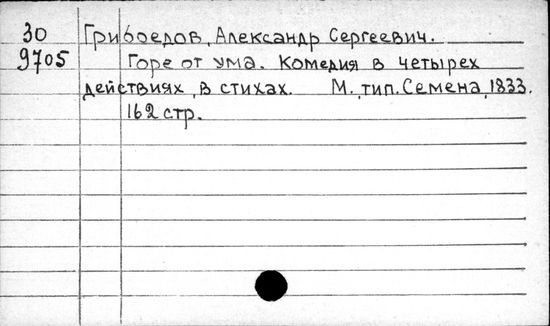 30 Грибоедов, Александр Сергеевич.
9705 Горе от ума. Комедия в четырех
действиях, в стихах. М., тип. Семена, 1833.
162 стр.